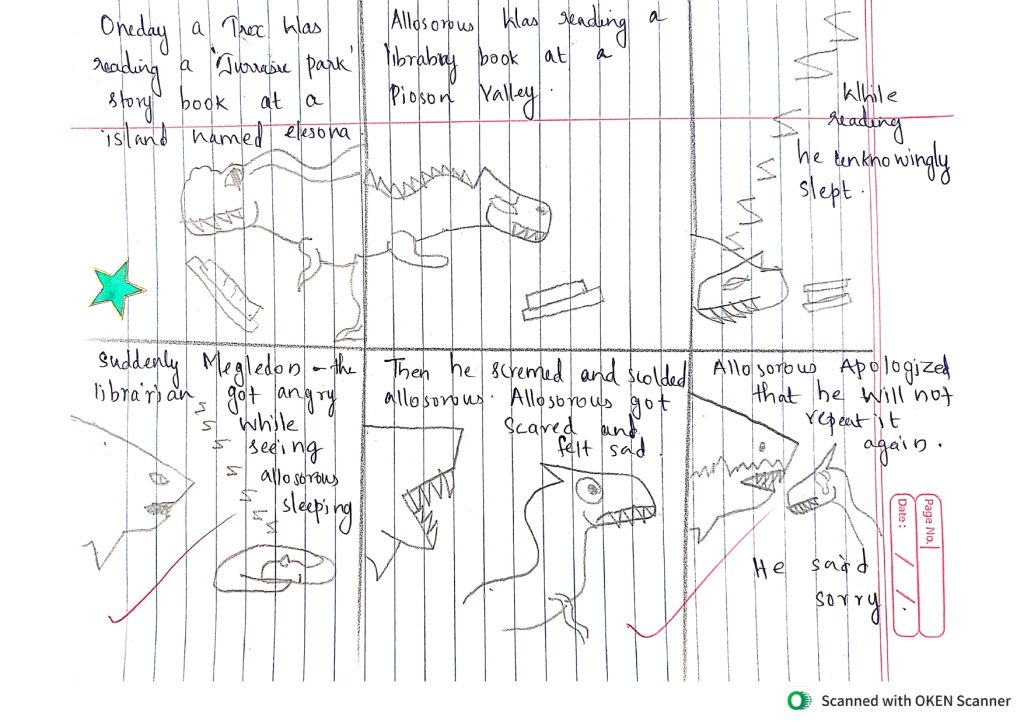 Oneday a Trex was
reading a 'Jurrasic park'
story book at a
island named elesona
Allosorous was reading a
librabry book at a
Pioson Valley.
While
reading
he unknowingly
slept.
Suddenly Megledon - the
librarian got angry
while
seeing
allosorous
sleeping
Then he scremed and scolded
allosorous. Allosorous got
scared and
felt sad.
Allosorous Apologized
that he will not
repeat it
again.
He said
sorry
Page No.
Date:
Scanned with OKEN Scanner